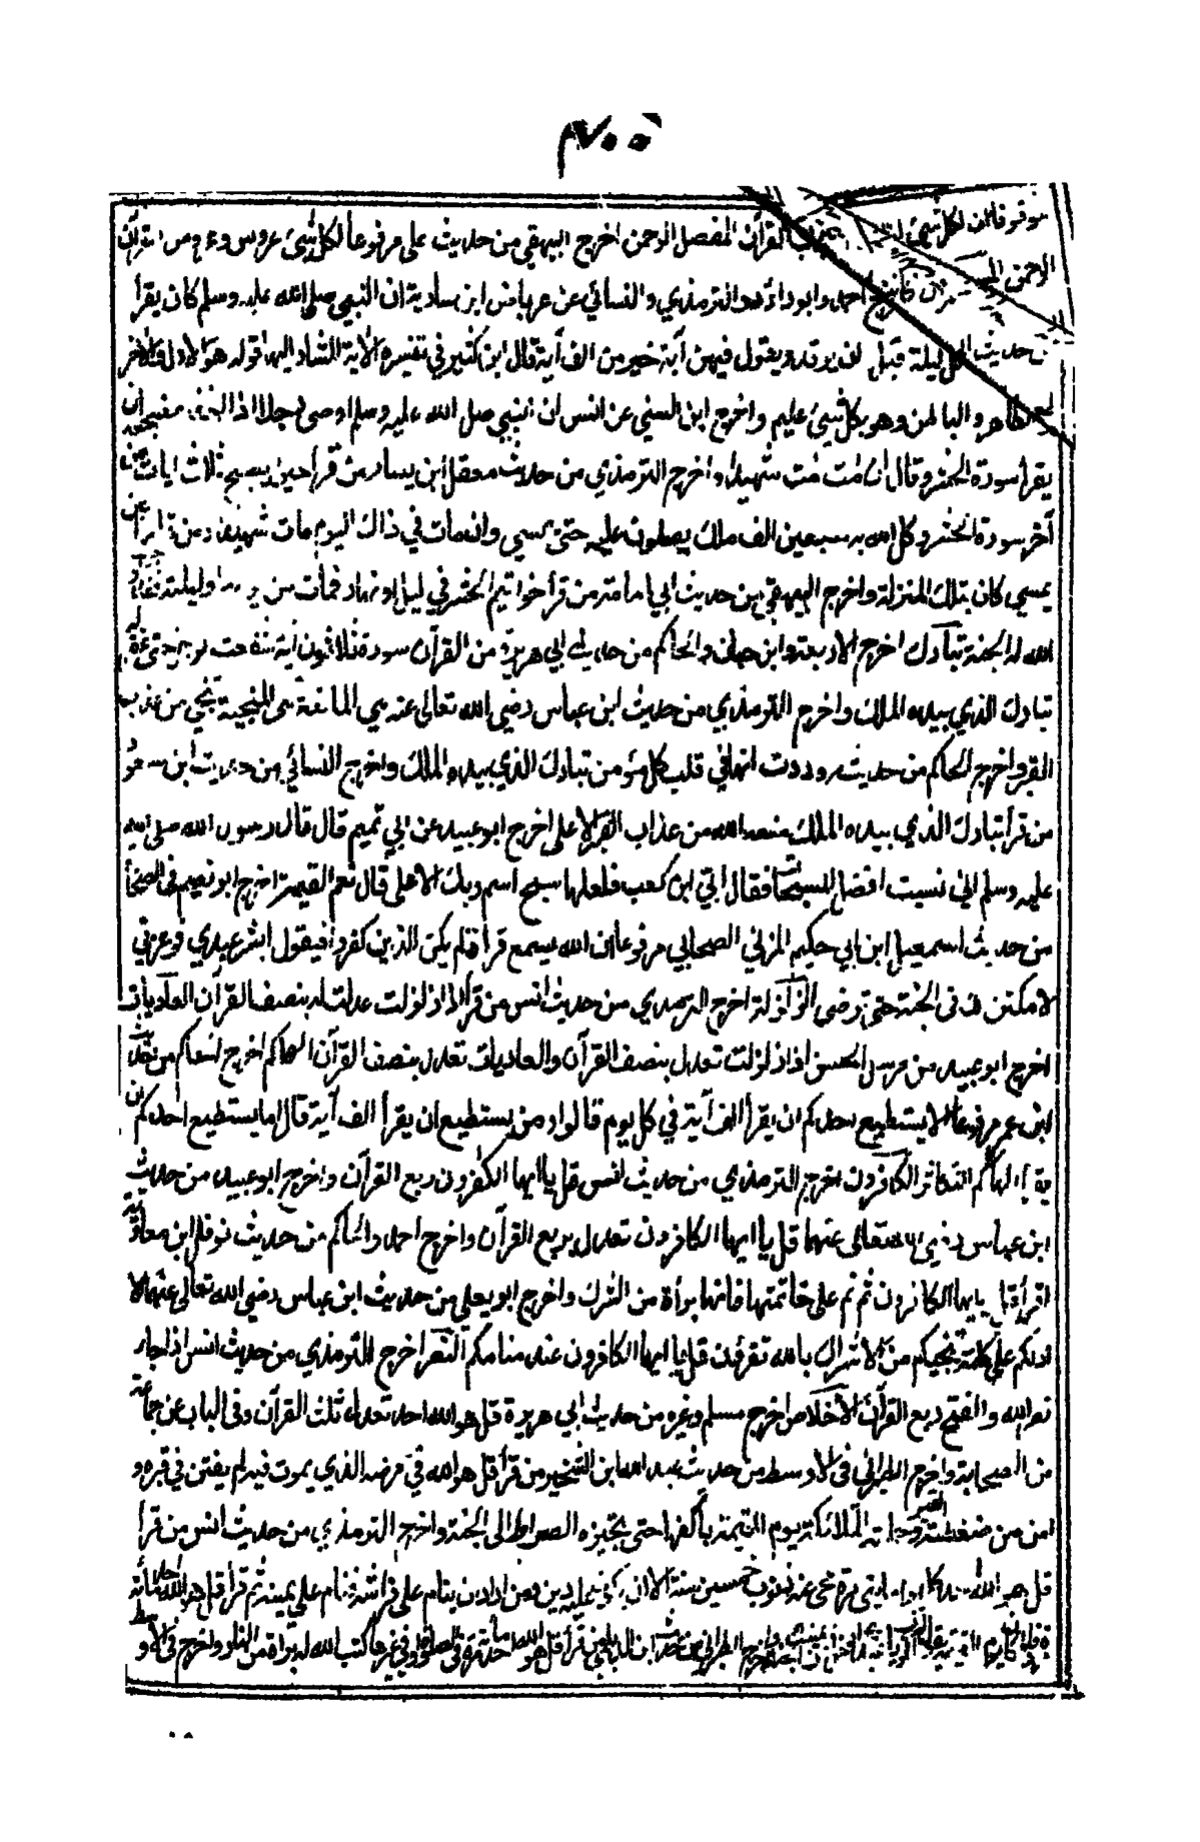 موقوفا ان لكل شيئ القرآن المفصل الرحمن اخرج البيهقي من حديث علي مرفوعا لكل شيئ عروس وعروس القرآن
الرحمن اخرج احمد وابو داؤد والترمذي والنسائي عن عرباض ابن سارية ان النبي صلى الله عليه وسلم كان يقرأ
كل ليلة قبل ان يرقد ويقول فيهن آية خير من الف آية قال ابن كثير في تفسيره الآية المشار اليها قوله هو الاول والآخر
والظاهر والباطن وهو بكل شيئ عليم واخرج ابن السني عن انس ان النبي صلى الله عليه وسلم اوصى رجلا اذا مضجعه ان
يقرأ سورة الحشر وقال ان مت مت شهيدا واخرج الترمذي من حديث معقل ابن يسار من قرأ حين يصبح ثلاث ايات من
آخر سورة الحشر وكل الله به سبعين الف ملك يصلون عليه حتى يمسي وان مات في ذلك اليوم مات شهيدا ومن قرأ حين
يمسي كان بتلك المنزلة واخرج البيهقي من حديث ابي امامة من قرأ خواتيم الحشر في ليل او نهار فمات من يومه او ليلته فقد اوجب
الله له الجنة تبارك اخرج الاربعة وابن حبان والحاكم من حديث ابي هريرة من القرآن سورة ثلاثون آية شفعت لرجل حتى غفر له
تبارك الذي بيده الملك واخرج الترمذي من حديث ابن عباس رضي الله تعالى عنه هي المانعة هي المنجية تنجي من عذاب
القبر واخرج الحاكم من حديثه وددت انها في قلب كل مؤمن تبارك الذي بيده الملك واخرج النسائي من حديث ابن مسعود
من قرأ تبارك الذي بيده الملك منعه الله من عذاب القبر الاعلى اخرج ابو عبيد عن ابي تميم قال قال رسول الله صلى الله
عليه وسلم اني نسيت افضل المسبحات فقال ابي ابن كعب فلعلها سبح اسم ربك الاعلى قال نعم القيمة اخرج ابو نعيم في الصحابة
من حديث اسمعيل ابن ابي حكيم المزني الصحابي مرفوعا ان الله يسمع قرأة لم يكن الذين كفروا فيقول ابشر عبدي فوعزتي
لامكنن لك في الجنة حتى ترضى الزلزلة اخرج الترمذي من حديث انس من قرأ اذا زلزلت عدلت له بنصف القرآن العاديات
اخرج ابو عبيد من مرسل الحسن اذا زلزلت تعدل بنصف القرآن والعاديات تعدل بنصف القرآن الهاكم اخرج الحاكم من حديث
ابن عمر مرفوعا الا يستطيع احدكم ان يقرأ الف آية في كل يوم قالوا ومن يستطيع ان يقرأ الف آية قال اما يستطيع احدكم ان
يقرأ الهاكم التكاثر الكافرون اخرج الترمذي من حديث انس قل يا ايها الكفرون ربع القرآن واخرج ابو عبيد من حديث
ابن عباس رضي الله تعالى عنهما قل يا ايها الكافرون تعدل بربع القرآن واخرج احمد والحاكم من حديث نوفل ابن معاوية
اقرأ قل يا يها الكافرون ثم نم على خاتمتها فانها برأة من الشرك واخرج ابو يعلى من حديث ابن عباس رضي الله تعالى عنهما الا
ادلكم على كلمة تنجيكم من الاشراك بالله تقرؤن قل يا ايها الكافرون عند منامكم النصر اخرج الترمذي من حديث انس اذا جاء
نصر الله والفتح ربع القرآن الاخلاص اخرج مسلم وغيره من حديث ابي هريرة قل هو الله احد تعدل ثلث القرآن وفي الباب عن جماعة
من الصحابة واخرج الطبراني في الاوسط من حديث عبد الله ابن الشخير من قرأ قل هو الله في مرضه الذي يموت فيه لم يفتن في قبره و
امن من ضغطة القبر وحملته الملائكة يوم القيمة باكفها حتى تجيزه الصراط الى الجنة واخرج الترمذي من حديث انس من قرأ
قل هو الله احد كل يوم مايتي مرة محي عنه ذنوب خمسين سنة الا ان يكون عليه دين ومن اراد ان ينام على فراشه فنام على يمينه ثم قرأ قل هو الله احد مائة
مرة فاذا كان يوم القيمة يقول الرب واخرج الطبراني من حديث ابن الديلمي من قرأ قل هو الله احد مائة مرة في الصلوة او في غيرها كتب الله له برأة من النار واخرج في الاوسط